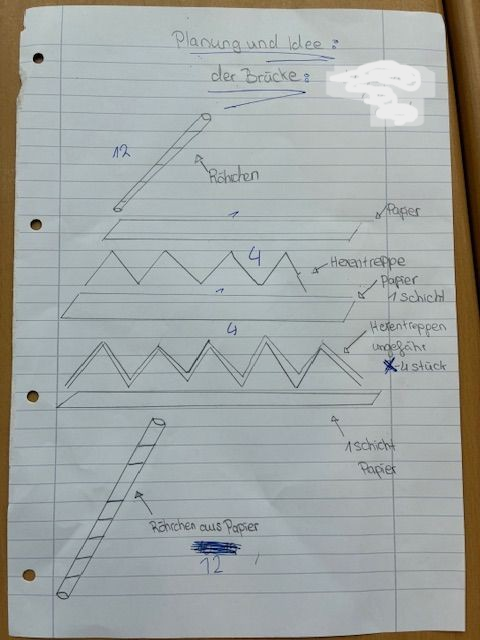 Planung und Idee:
der Brücke:
12
Röhrchen
1
Papier
4
Hexentreppe
1
Papier
1 Schicht
4
Hexentreppen
ungefähr
4 stück
1 schicht
Papier
Röhrchen aus Papier
12